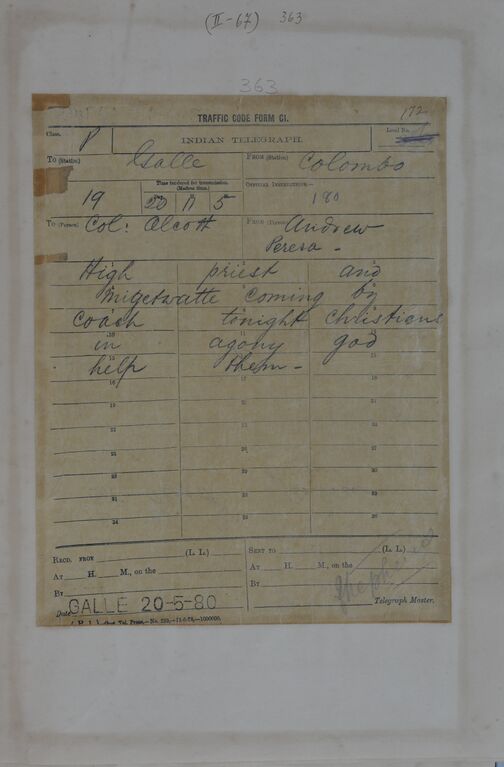 (II-67) 363
363
TRAFFIC CODE FORM C1.
172
Class.
P
INDIAN TELEGRAPH.
Local No.
To (Station) Galle
From (Station) Colombo
19
Time tendered for transmission.
(Madras time.)
20 H 5
Official Instructions—
180
To (Person) Col: Olcott
From (Person) Andrew
Perera -
High priest and
Migetwatte coming by
coach tonight christians
in agony god
help them -
10 11
15
16 17 18
19 20 21
22 23 24
25 26 27
28 29 30
31 32 33
34 35 36
Recd. from (L. L.)
At H. M., on the
By
Sent to (L. L.)
At H. M., on the
By
Date GALLE 20-5-80
Telegraph Master.